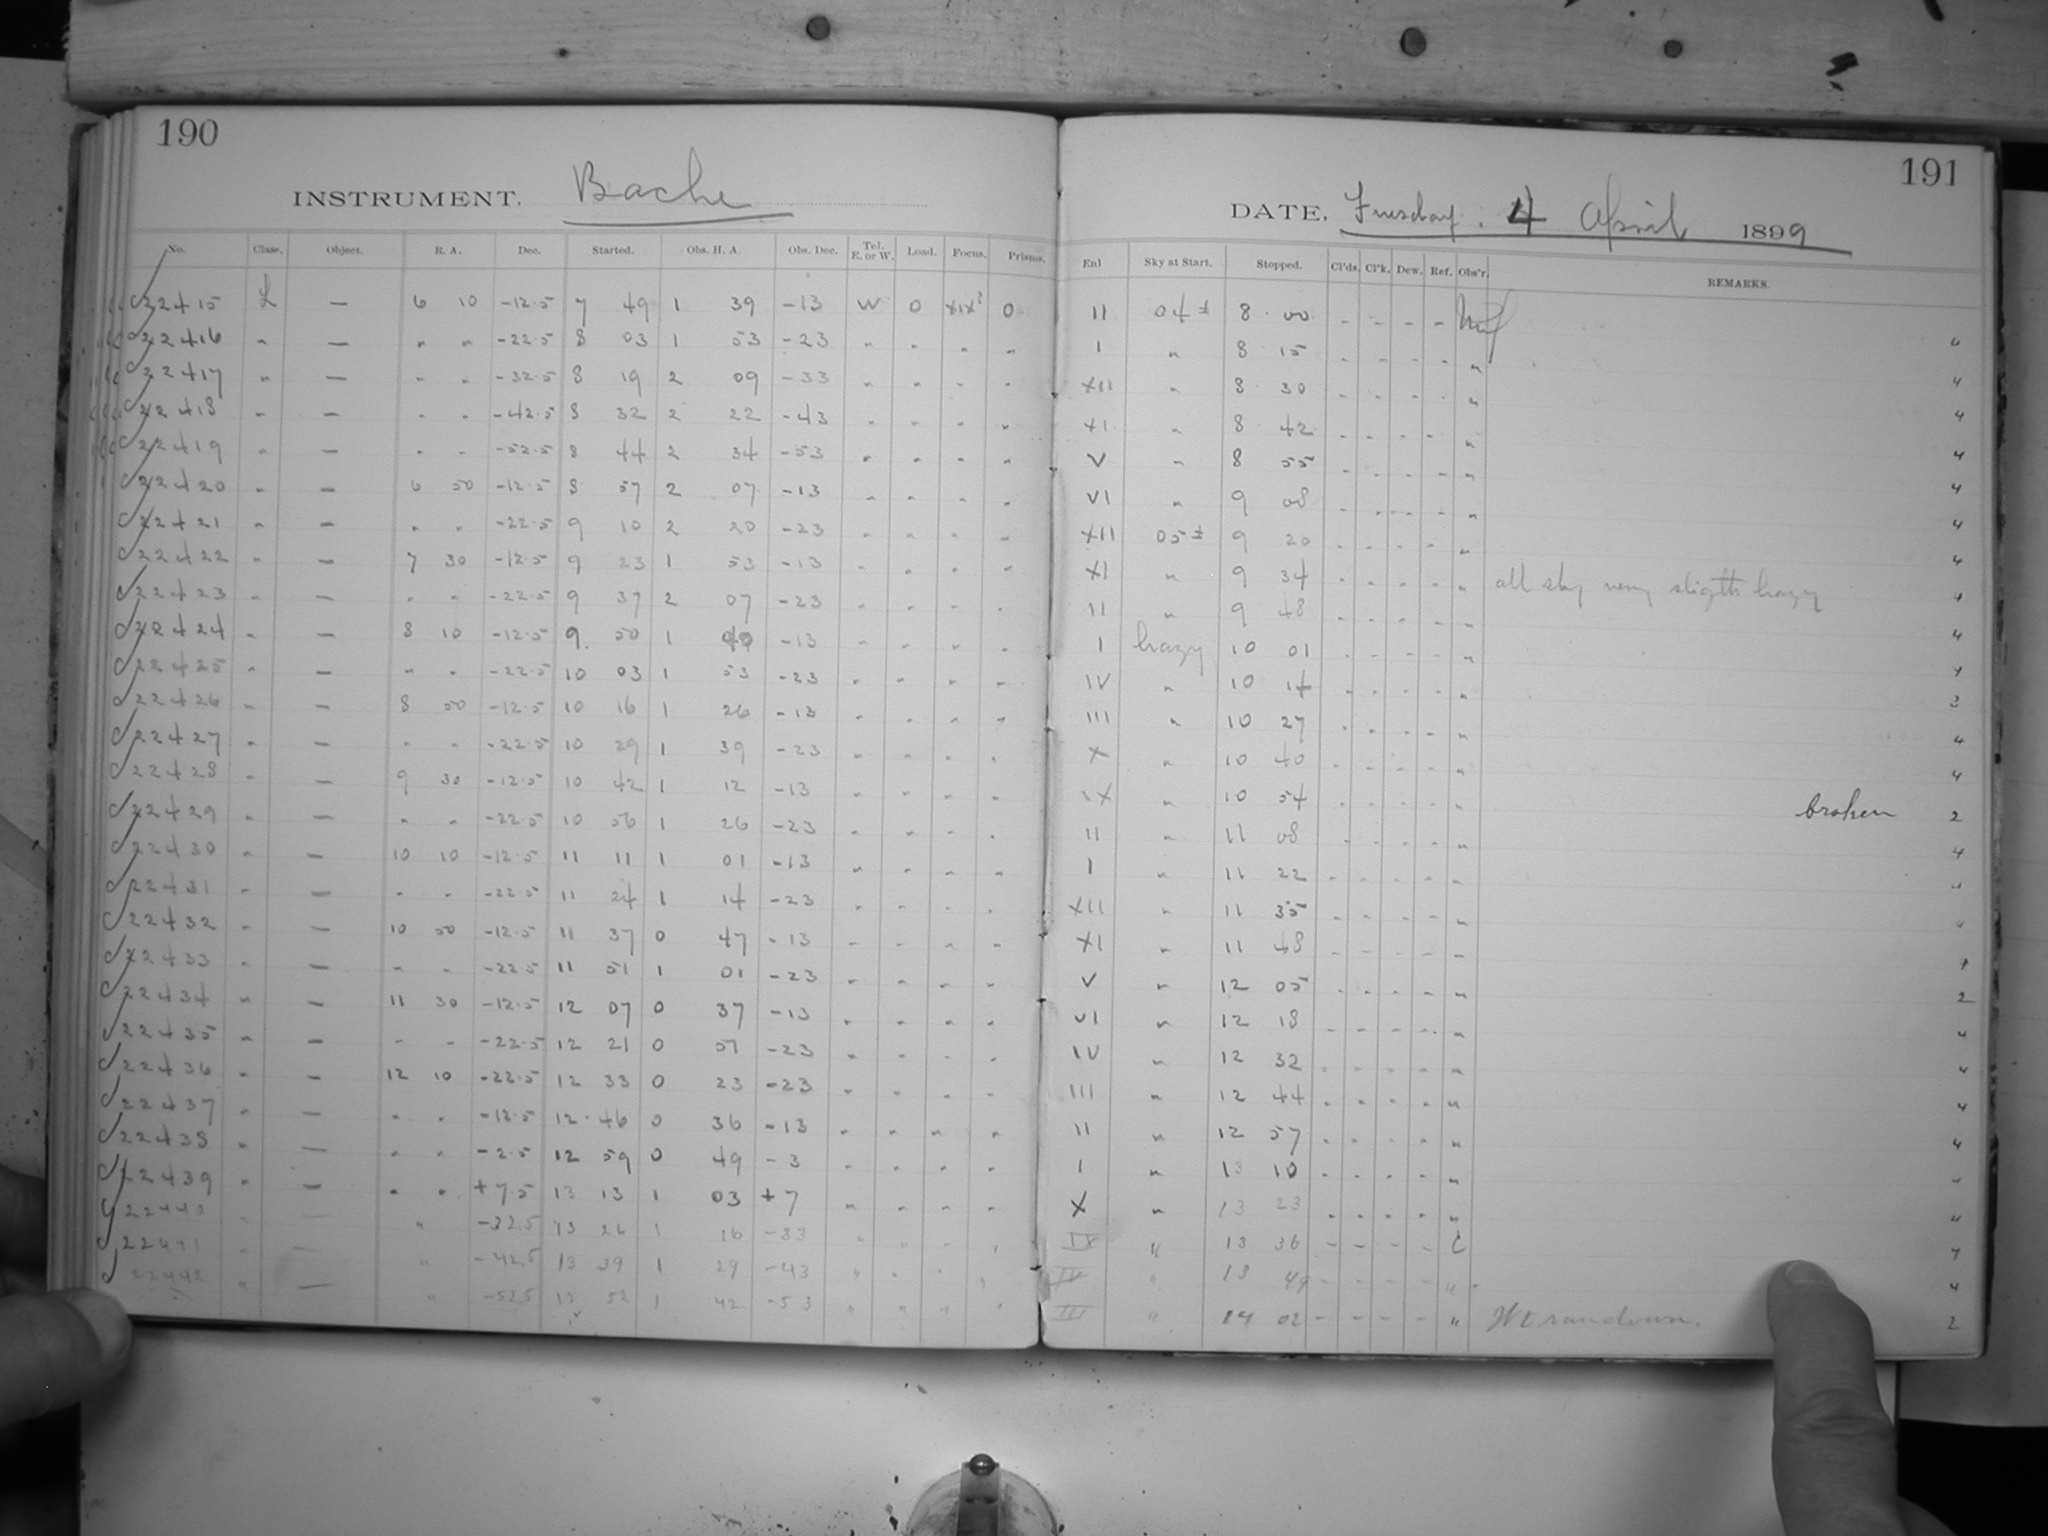 190
INSTRUMENT. Bache
No. Class. Object. R. A. Dec. Started. Obs. H. A. Obs. Dec. Tel. E. or W. Load. Focus. Prisms.
22415 L — 6 10 -12.5 7 49 1 39 -13 W 0 XIX² 0
22416 " — " " -22.5 8 03 1 53 -23 " " " "
22417 " — " " -32.5 8 19 2 09 -33 " " " "
22418 " — " " -42.5 8 32 2 22 -43 " " " "
22419 " — " " -52.5 8 44 2 34 -53 " " " "
22420 " — 6 50 -12.5 8 57 2 07 -13 " " " "
22421 " — " " -22.5 9 10 2 20 -23 " " " "
22422 " — 7 30 -12.5 9 23 1 53 -13 " " " "
22423 " — " " -22.5 9 37 2 07 -23 " " " "
22424 " — 8 10 -12.5 9 50 1 40 -13 " " " "
22425 " — " " -22.5 10 03 1 53 -23 " " " "
22426 " — 8 50 -12.5 10 16 1 26 -13 " " " "
22427 " — " " -22.5 10 29 1 39 -23 " " " "
22428 " — 9 30 -12.5 10 42 1 12 -13 " " " "
22429 " — " " -22.5 10 56 1 26 -23 " " " "
22430 " — 10 10 -12.5 11 11 1 01 -13 " " " "
22431 " — " " -22.5 11 24 1 14 -23 " " " "
22432 " — 10 50 -12.5 11 37 0 47 -13 " " " "
22433 " — " " -22.5 11 51 1 01 -23 " " " "
22434 " — 11 30 -12.5 12 07 0 37 -13 " " " "
22435 " — " " -22.5 12 21 0 51 -23 " " " "
22436 " — 12 10 -22.5 12 33 0 23 -23 " " " "
22437 " — " " -12.5 12 46 0 36 -13 " " " "
22438 " — " " -2.5 12 59 0 49 -3 " " " "
22439 " — " " +7.5 13 13 1 03 +7 " " " "
22440 " — " -32.5 13 26 1 16 -33 " " " "
22441 " — " -42.5 13 39 1 29 -43 " " " "
22442 " — " -52.5 13 52 1 42 -53 " " " "
191
DATE, Tuesday. 4 April 1899
Enl Sky at Start. Stopped. Cl'ds. Cl'k. Dew. Ref. Obs'r. REMARKS.
II 04± 8 00 - - - -
I " 8 15 - - - - " 4
XII " 8 30 - - - - " 4
XI " 8 42 - - - - " 4
V " 8 55 - - - - " 4
VI " 9 08 - - - - " 4
XII 05± 9 20 - - - - " 4
XI " 9 34 - - - - " all sky very sligth hazy 4
II " 9 48 - - - - " 4
I hazy 10 01 - - - - " 4
IV " 10 14 - - - - " 4
III " 10 27 - - - - " 3
X " 10 40 - - - - " 4
IX " 10 54 - - - - " broken 4
II " 11 08 - - - - " 2
I " 11 22 - - - - " 4
XII " 11 35 - - - - " 4
XI " 11 48 - - - - " 4
V " 12 05 - - - - " 4
VI " 12 18 - - - - " 2
IV " 12 32 - - - - " 4
III " 12 44 - - - - " 4
II " 12 57 - - - - " 4
I " 13 10 - - - - " 4
X " 13 23 - - - - " 4
IX " 13 36 - - - - C 4
" 13 49 - - - - " 4
III " 14 02 - - - - " Wt ran down. 2